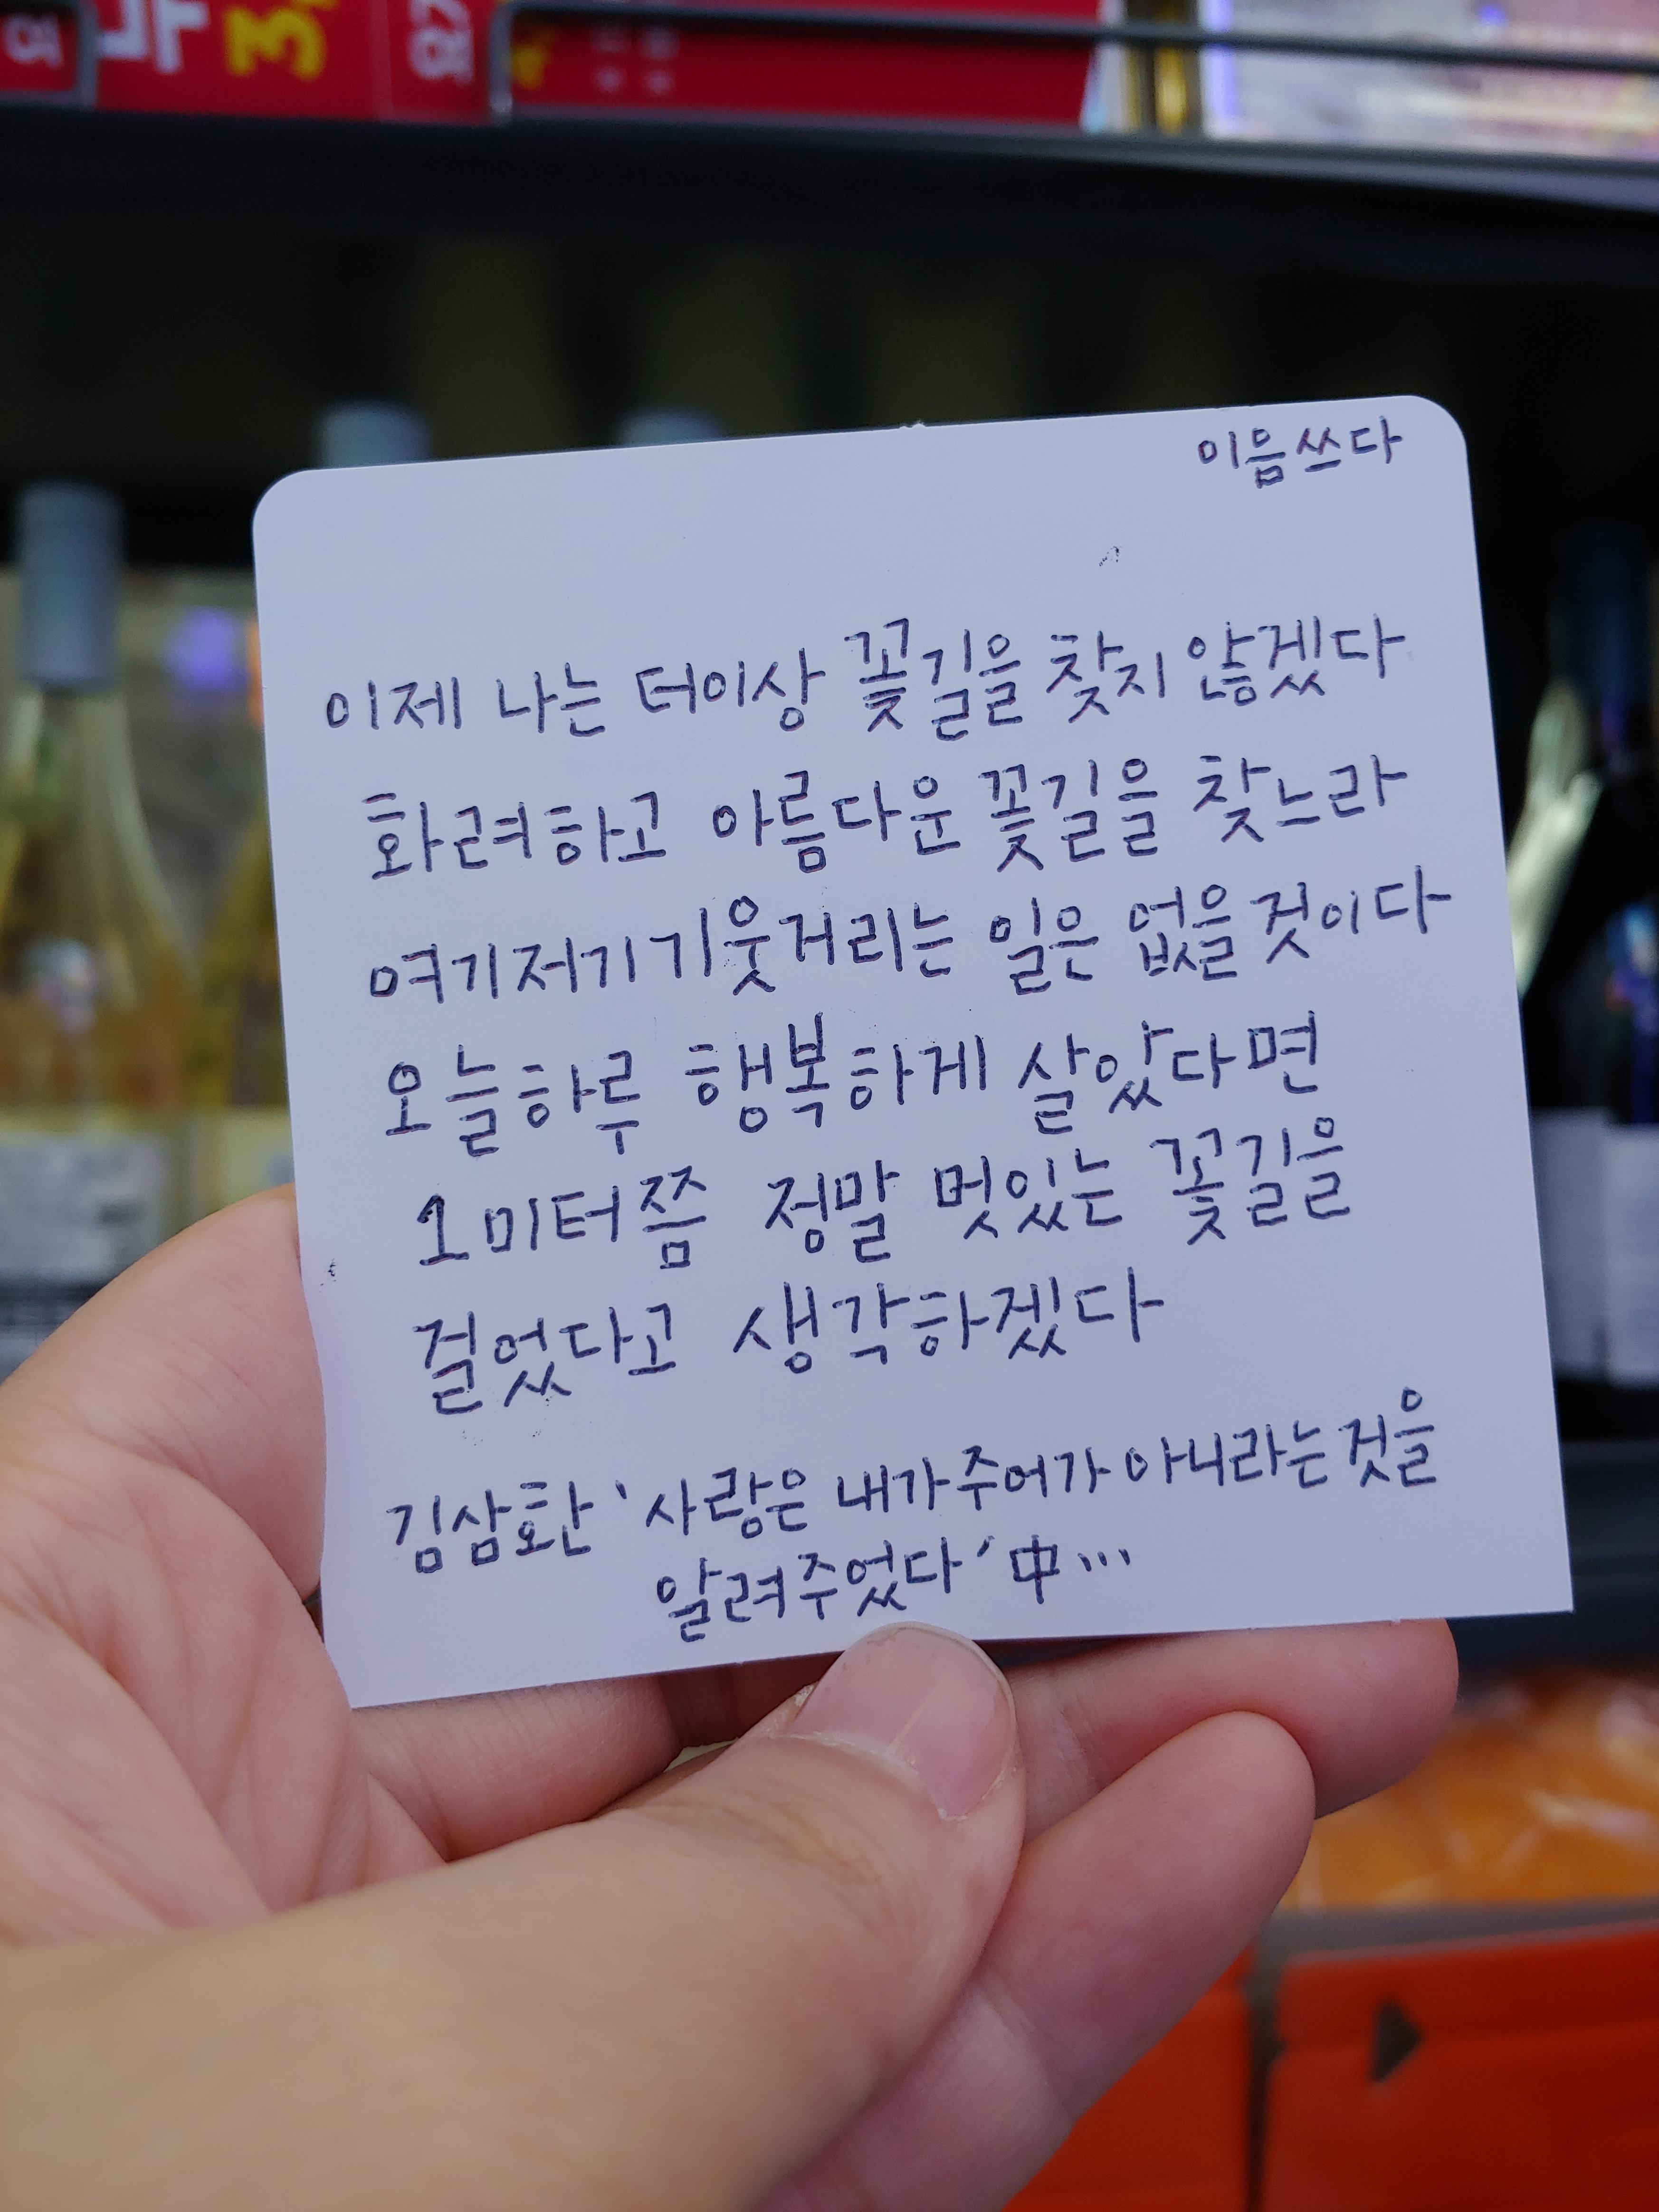 이음쓰다
이제 나는 더이상 꽃길을 찾지 않겠다
화려하고 아름다운 꽃길을 찾느라
여기저기 기웃거리는 일은 없을것이다
오늘하루 행복하게 살았다면
1미터쯤 정말 멋있는 꽃길을
걸었다고 생각하겠다
김삼환 '사랑은 내가주어가 아니라는것을
알려주었다' 中...